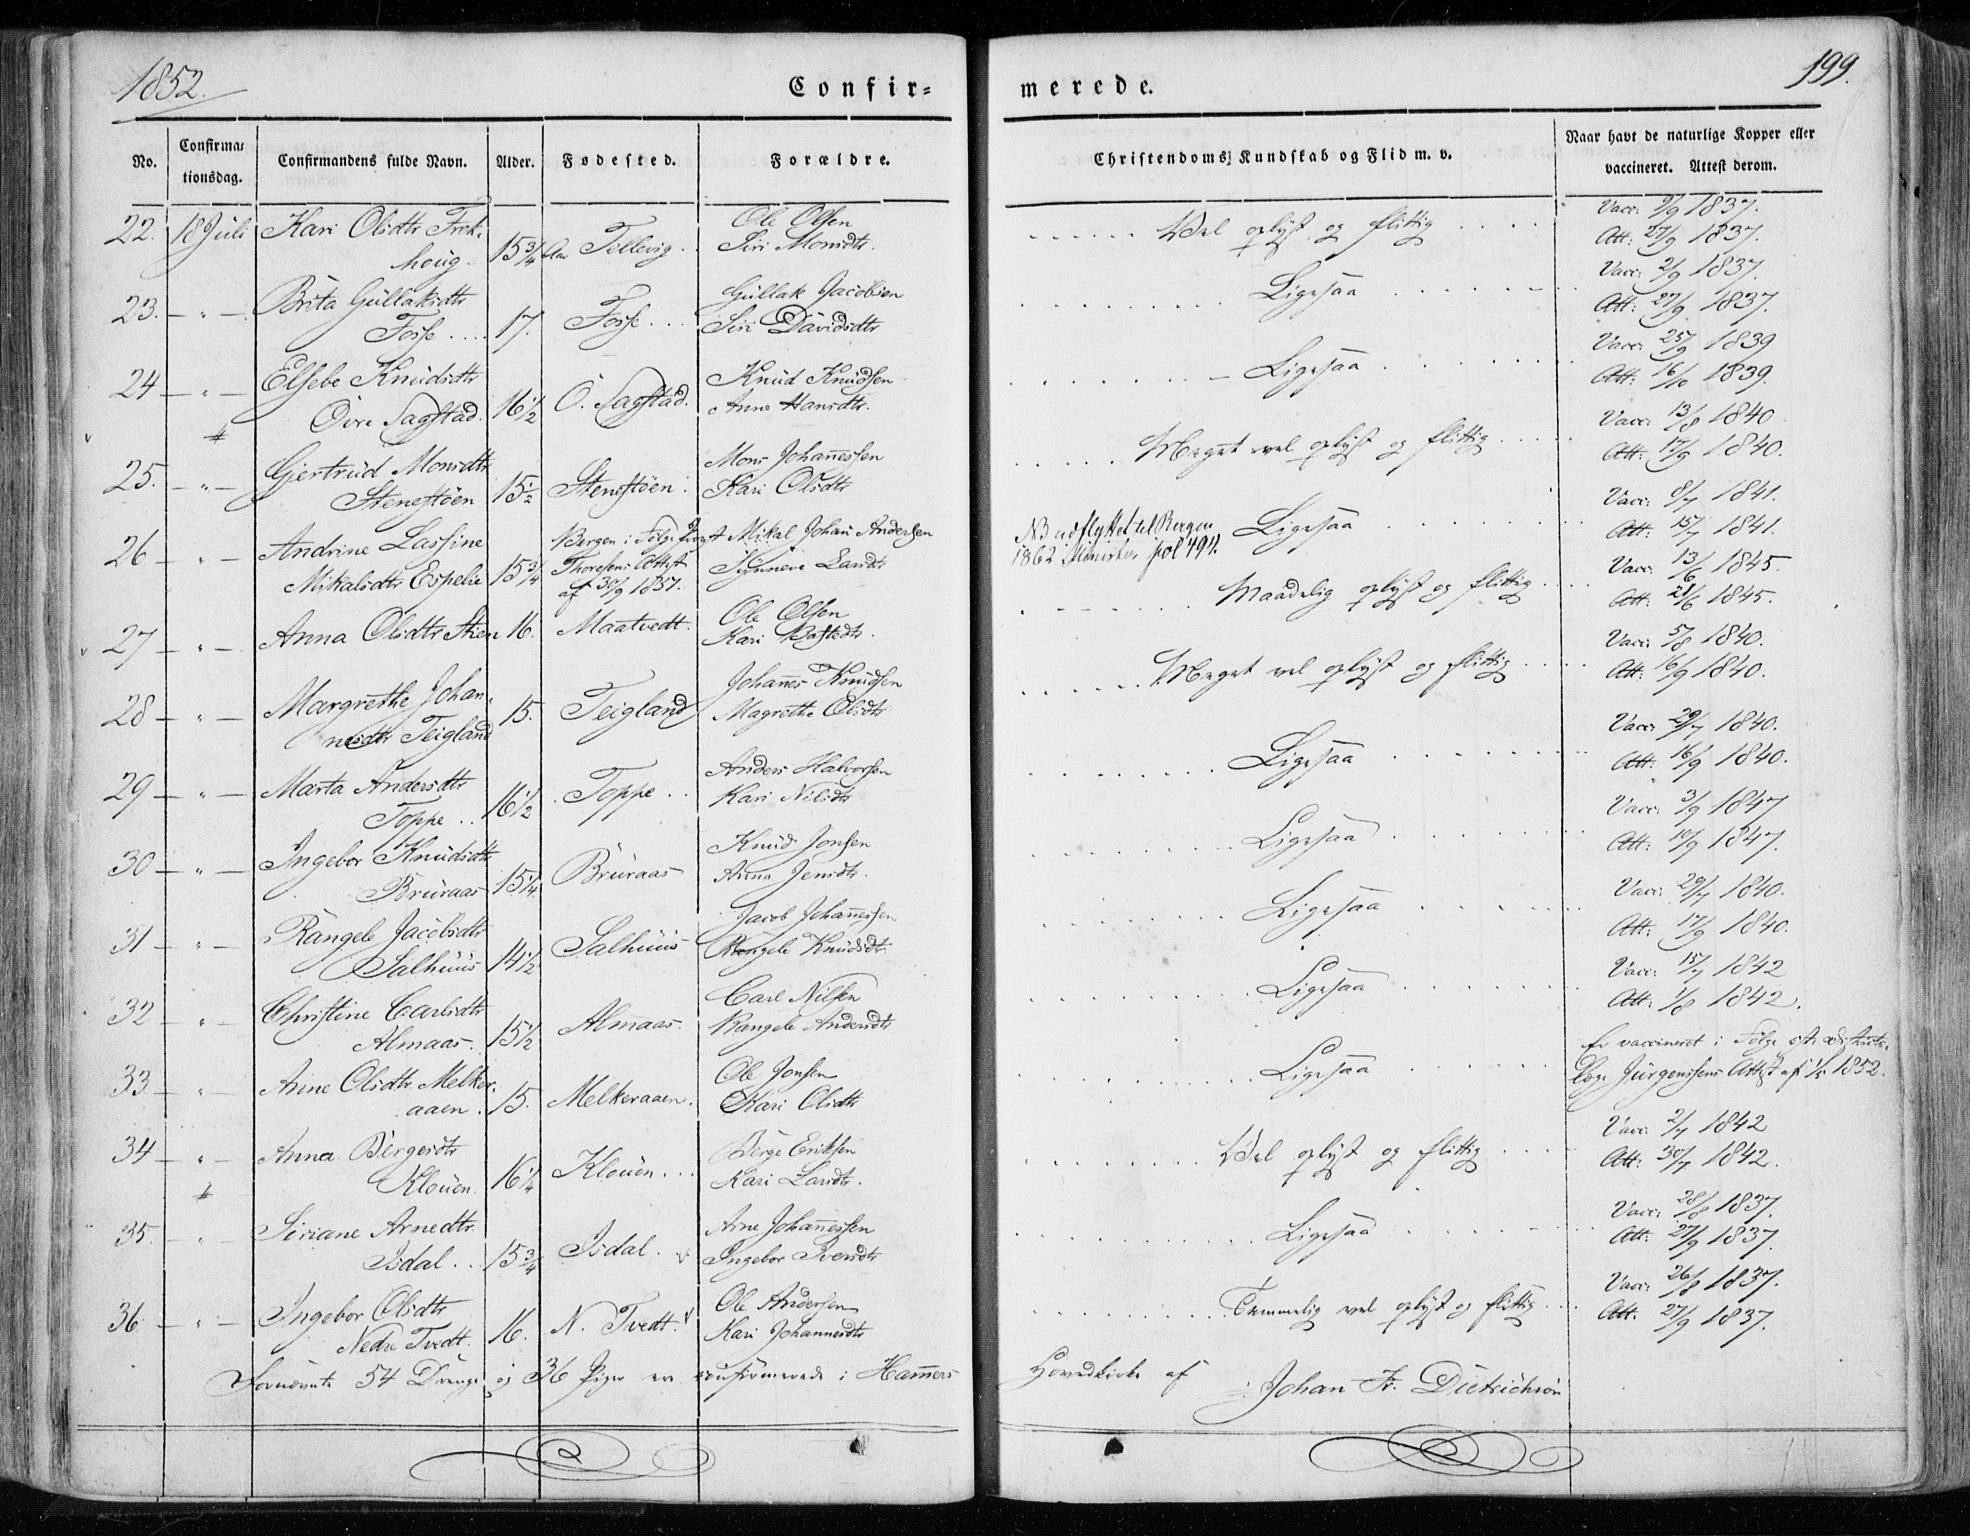 1852.
Confir=
merede.
199.
No. Confirma= tionsdag. Confirmandens fulde Navn. Alder. Fødested. Forældre. Christendoms Kundskab og Flid m. v. Naar havt de naturlige Kopper eller vaccineret. Attest derom.
22. 18 Juli Kari Olsdtr Frek- 15 3/4 Aar Tellevig.. Ole Olsen Vel oplyst og flittig Vacc: 9/9 1837.
houg. Siri Monsdtr. Att: 27/9 1837.
23. — " — Brita Gullaksdtr Gullak Jacobsen Ligesaa Vacc: 2/9 1837.
Fosse .... 17. Fosse... Siri Davidsdtr Att: 27/9 1837.
24 — " — Elsebe Knudsdtr Knud Knudsen Ligesaa Vacc: 25/9 1839
Övre Sagstad. 16 1/2 Ö. Sagstad. Anne Hansdtr. Att: 16/10 1839.
25. — " — Gjertrud Monsdtr Mons Johannessen Meget vel oplyst og flittig Vacc: 13/8 1840
Stenestöen 15 1/2 Stenestöen. Kari Olsdtr Att: 17/9 1840.
26 — " — Andrine Lassine Bergen i Følge Provst Mikal Johan Andersen NB udflyttet til Bergen Ligesaa Vacc: 8/7 1841.
Mikalsdtr Espelie 15 3/4 Thoresens Attest Synneve Larsdtr 1862 Minister. fol 494. Att: 15/7 1841.
af 30/9 1837.
27 — " — Anna Olsdtr Stien 16. Maatvedt. Ole Olsen Maadelig oplyst og flittig Vacc: 13/6 1845.
Kari Att: 21/6 1845.
28 — " — Margrethe Johan- 15. Teigland Johannes Knudsen Meget vel oplyst og flittig Vacc: 5/8 1840.
nesdtr Teigland Magrethe Olsdtr Att: 16/9 1840.
29 — " — Marta Andersdtr Anders Halvorsen Ligesaa Vacc: 29/7 1840.
Toppe .. 16 1/2 Toppe.. Kari Nilsdtr Att: 16/9 1840.
30 — " — Ingebor Knudsdtr Knud Jonsen Ligesaa Vacc: 3/9 1847
Bruraas 15 1/4 Bruraas Anna Jensdtr. Att: 10/9 1847.
31 — " — Rangele Jacobsdtr Jacob Johannessen Ligesaa Vacc: 29/7 1840.
Salhuus 14 1/2 Salhuus Rangele Knudsdtr Att: 17/9 1840.
32 — " — Christine Carlsdtr Carl Nilsen Ligesaa Vacc: 15/7 1842
Almaas. 15 1/2 Almaas. Rangele Andersdtr Att: 1/8 1842.
33 — " Anne Olsdtr Melker- Ole Jonsen Ligesaa Er vaccineret i Følge
aaen. 15. Melkeraaen. Kari Olsdtr Læge Jürgensens Attest af 1852.
34 — " — Anna Börgesdtr Börge Eriksen Vel oplyst og flittig Vacc: 2/7 1842
Klouen. 16 1/4 Klouen... Kari Larsdtr. Att: 30/7 1842.
35. — " — Siriane Arnedtr Arne Johannessen Ligesaa Vacc: 28/8 1837.
Isdal... 15 3/4 Isdal. Ingebor Iversdtr Att: 27/9 1837.
36 — " — Ingebor Olsdtr Ole Andersen Temmelig vel oplyst og flittig Vacc: 26/8 1837.
Nedre Tvedt. 16. N. Tvedt. Kari Johannesdtr Att. 27/9 1837.
Fornævnte 54 Drenge og 36 Piger ere confirmerede i Hammers Hovedkirke af Johan Fr. Dietrichson